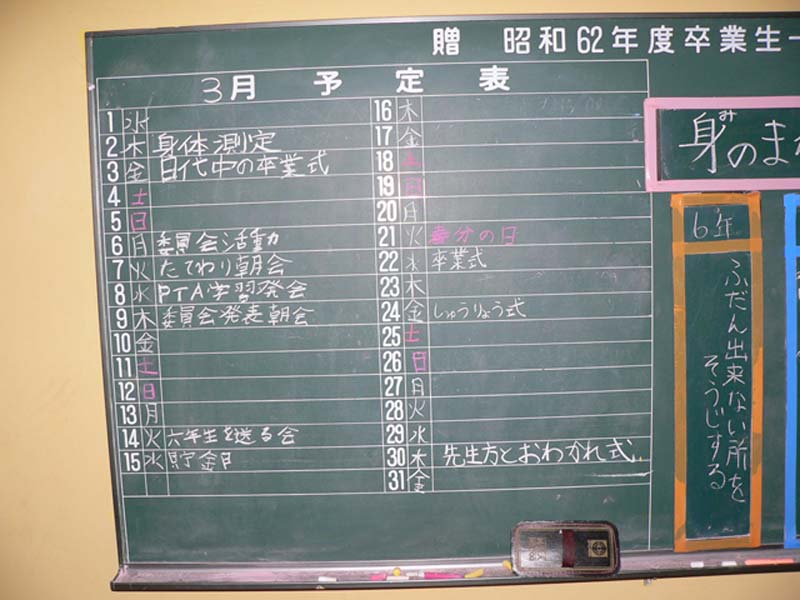 贈 昭和62年度卒業生一
3月 予定表
1 水
2 木 身体測定
3 金 目代中の卒業式
4 土
5 日
6 月 委員会活動
7 火 たてわり朝会
8 水 PTA学習発会
9 木 委員会発表朝会
10 金
11 土
12 日
13 月
14 火 六年生を送る会
15 水 貯金日
16 木
17 金
18 土
19 日
20 月
21 火 春分の日
22 水 卒業式
23 木
24 金 しゅうりょう式
25 土
26 日
27 月
28 火
29 水
30 木 先生方とおわかれ式
31 金
身のま
み
6年
ふだん出来ない所を
そうじする